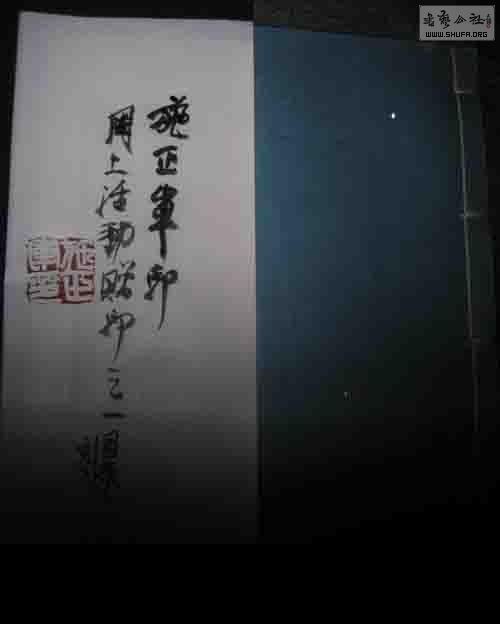 施正军印
网上活动赠印之一
书艺公社
WWW.SHUFA.ORG